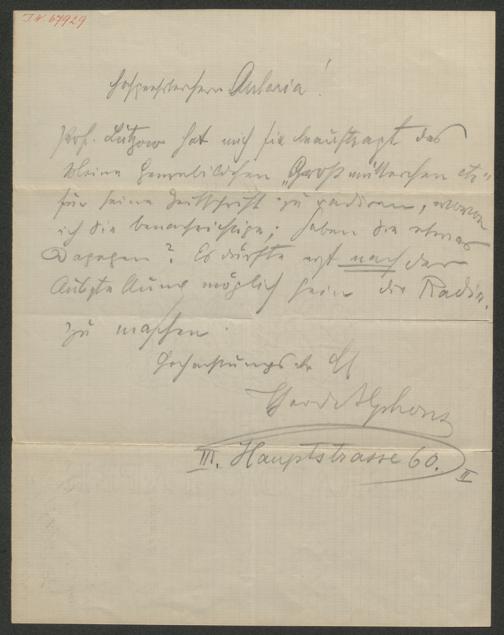 I.N. 67929
Hochverehrter Herr Artaria!
Prof. Lützow hat mich beauftragt das
kleine Genrebildchen „Großmütterchen etc“
für seine Zeitschrift zu radiren, wovon
ich Sie benachrichtige; haben Sie etwas
dagegen? Es dürfte erst nach der
Ausstellung möglich sein die Radir.
zu machen.
Hochachtungsvoll
III. Hauptstrasse 60.
II